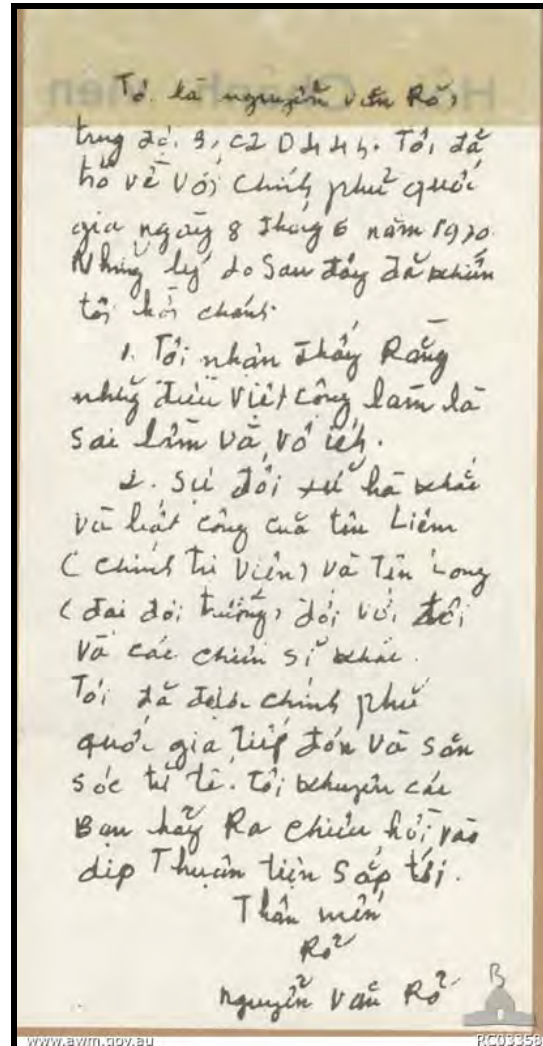 Tôi là nguyễn văn Rở,
trung đội 3, C2 D445. Tôi đã
về với chính phủ quốc
gia ngày 8 tháng 6 năm 1970.
Những lý do sau đây đã khiến
tôi hồi chánh.
1. Tôi nhận thấy Rằng
những điều việt cộng làm là
sai lầm và vô ích.
2. Sự đối xử hà khắc
và bất công của tên Liêm
(chính trị viên) và Tên Long
(đại đội trưởng) đối với tôi
và các chiến sĩ khác.
Tôi đã được chính phủ
quốc gia tiếp đón và săn
sóc tử tế. Tôi khuyên các
Bạn hãy Ra chiêu hồi vào
dịp Thuận tiện sắp tới.
Thân mến
Rở
nguyễn văn Rở
B
www.awm.gov.au
RC03358